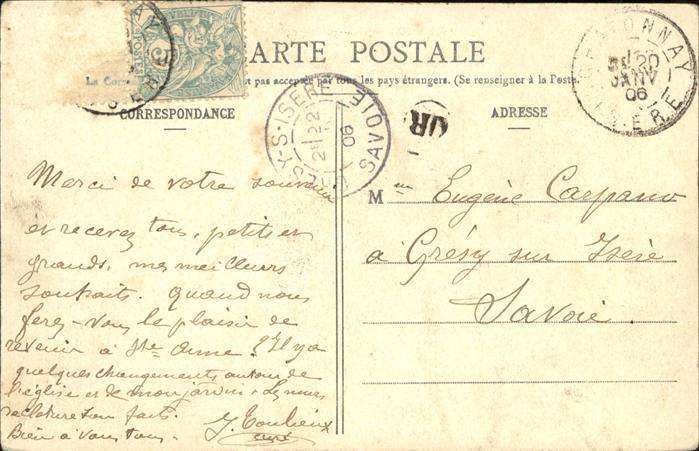 CARTE POSTALE
La Corre est pas acceptée par tous les pays étrangers. (Se renseigner à la Poste.
CORRESPONDANCE
ADRESSE
20
JANV
06
ISERE
SY-S-ISERE
SAVOIE
22
06
OR
Merci de votre souvenir
et recevez tous, petits et
grands, mes meilleurs
souhaits. Quand nous
ferez-vous le plaisir de
revenir à Ste Anne? Il y a
quelques changements autour de
l'église et de mon jardin. Les murs
de clôture son faits.
Bien à vous tous.
curé
M Eugène Carpano
à Grésy sur Isère
Savoie